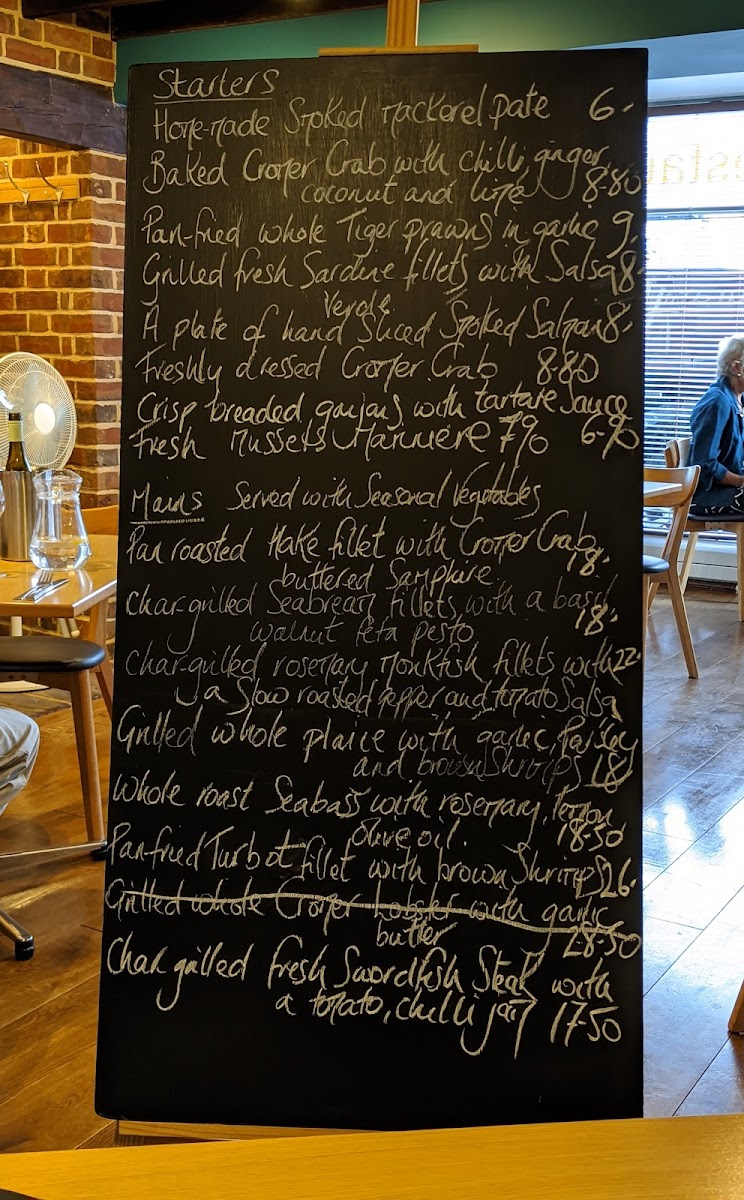 Starters
Home-made Smoked Mackerel pate 6.
Baked Cromer Crab with chilli, ginger,
coconut and lime 8.80
Pan-fried whole Tiger prawns in garlic 9.
Grilled fresh Sardine fillets with Salsa 8.
Verde
A plate of hand Sliced Smoked Salmon 8.
Freshly dressed Cromer Crab 8.80
Crisp breaded goujons with tartare Sauce
Fresh Mussels Mariniere 7.90 6.90
Mains Served with Seasonal Vegetables
Pan roasted Hake fillet with Cromer Crab
buttered Samphire 18.
Char-grilled Seabream fillets with a basil
walnut feta pesto 18.
Char-grilled rosemary Monkfish fillets with 22.
a Slow roasted pepper and tomato Salsa
Grilled whole plaice with garlic, Parsley
and brown Shrimps 18
Whole roast Seabass with rosemary, Lemon
Olive oil. 18.50
Pan-fried Turbot fillet with brown Shrimps 26.
Grilled whole Cromer Lobster with garlic
butter 28.50
Char grilled fresh Swordfish Steak with
a tomato, chilli jam 17.50
esta